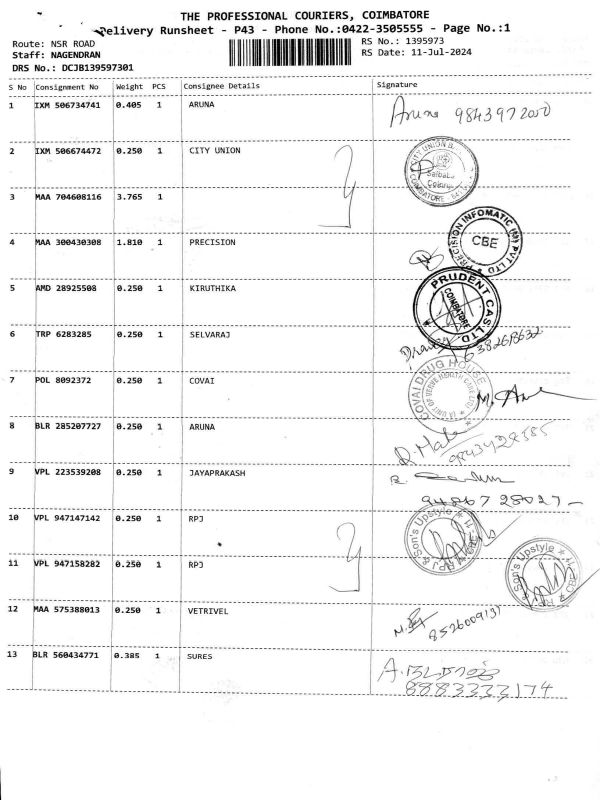 THE PROFESSIONAL COURIERS, COIMBATORE
Delivery Runsheet - P43 - Phone No.:0422-3505555 - Page No.:1
Route: NSR ROAD
RS No.: 1395973
Staff: NAGENDRAN
RS Date: 11-Jul-2024
DRS No.: DCJB139597301
S No Consignment No Weight PCS Consignee Details Signature
1 IXM 506734741 0.405 1 ARUNA Aruna 9843972000
2 IXM 506674472 0.250 1 CITY UNION
CITY UNION B
Saibaba
Colony
COIMBATORE
3 MAA 704608116 3.765 1
4 MAA 300430308 1.810 1 PRECISION
PRECISION INFOMATIC (M) PVT LTD
CBE
5 AMD 28925508 0.250 1 KIRUTHIKA
PRUDENT CAS LTD
COIMBATORE
6 TRP 6283285 0.250 1 SELVARAJ
7 POL 8092372 0.250 1 COVAI
COVAI DRUG HOUSE
8 BLR 285207727 0.250 1 ARUNA
9 VPL 223539208 0.250 1 JAYAPRAKASH
94867 28027
10 VPL 947147142 0.250 1 RPJ
RPJ & Son's Upstyle
11 VPL 947158282 0.250 1 RPJ
RPJ & Son's Upstyle
12 MAA 575388013 0.250 1 VETRIVEL
8526009131
13 BLR 560434771 0.385 1 SURES
8883333174